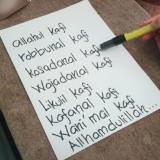 Allahul kafi
robbunal kafi
Kosadanal kafi
Wajadanal kafi
Likull kafi
Kafanal kafi
Wani'mal kafi
Alhamdulillah...